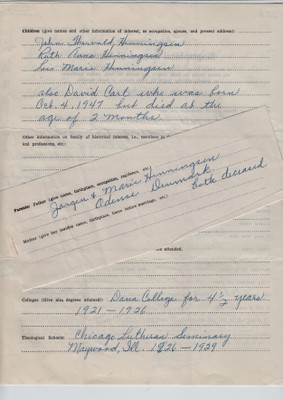 Children (give names and other information of interest, as occupation, spouse, and present address):
John Thorvald Henningsen
Ruth Anna Henningsen
Lois Marie Henningsen
also David Carl who was born
Oct. 4, 1947 but died at the
age of 2 months.
Other information on family of historical interest, i.e.,
and professions, etc.:
Parents: Father (give name, birthplace, occupation, residence, etc.)
Jorgen & Marie Henningsen
Odense Denmark
both deceased
Mother (give her maiden name, birthplace, home before marriage, etc.)
attended.
Colleges (Give also degrees attained): Dana College for 4½ years
1921-1926
Theological Schools: Chicago Lutheran Seminary
Maywood, Ill. 1926-1929